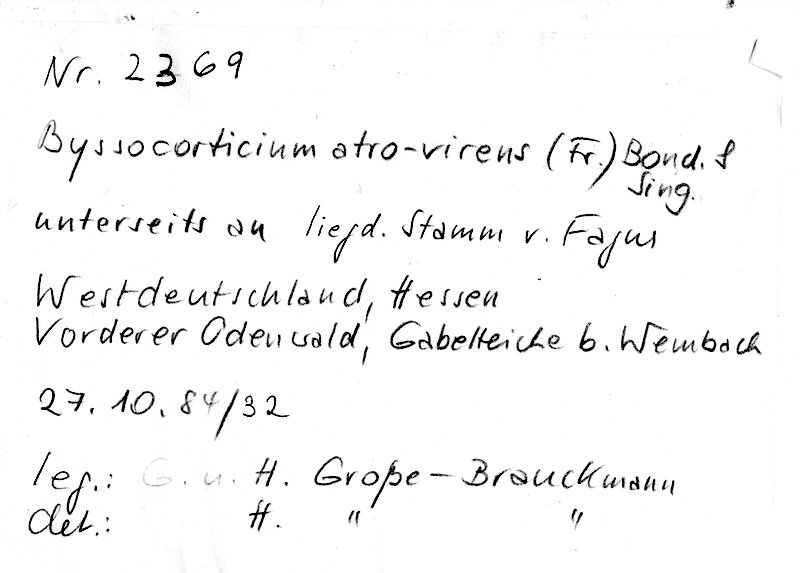 Nr. 2369
Byssocorticium atro-virens (Fr.) Bond. &
Sing.
unterseits an liegd. Stamm v. Fagus
Westdeutschland, Hessen
Vorderer Odenwald, Gabelteiche b. Wembach
27. 10. 84/32
leg.: G. u. H. Große-Brauckmann
det.: H. " "